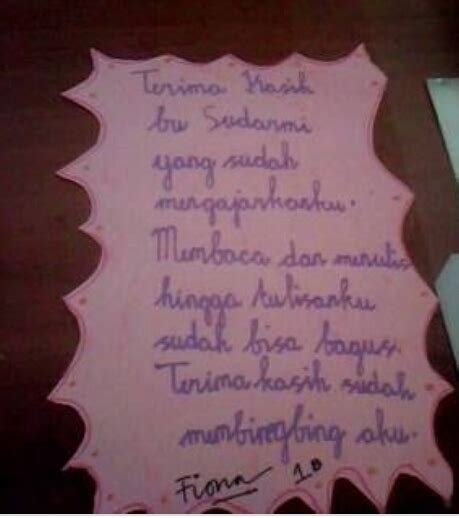 Terima Kasih
bu Sudarmi
yang sudah
mengajarkanku.
Membaca dan menulis
hingga tulisanku
sudah bisa bagus.
Terima kasih sudah
membingbing aku.
Fiona 1B